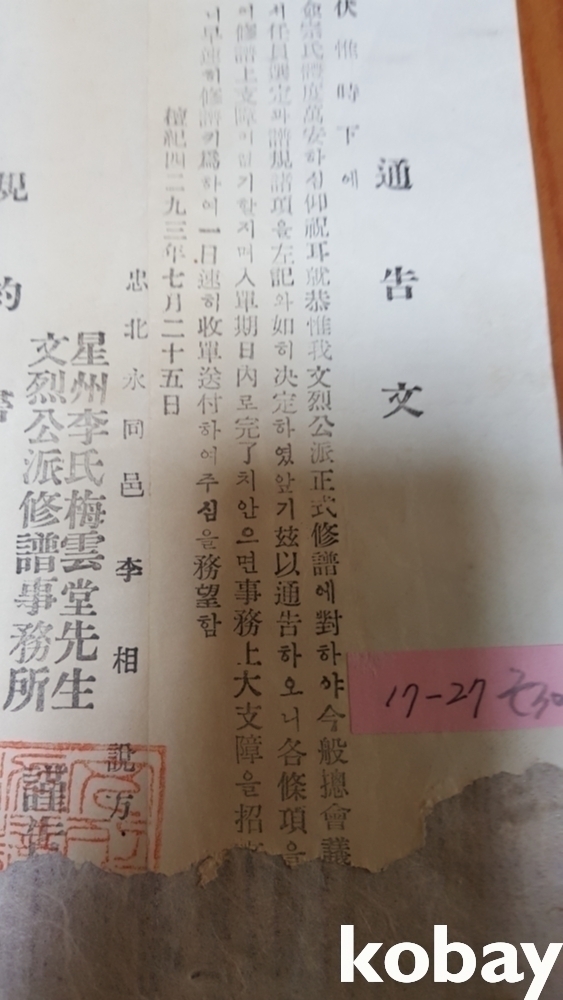 通告文
伏惟時下에
僉宗氏體度萬安하심仰祝耳就恭惟我文烈公派正式修譜에對하야今般總會議
任員選定과譜規諸項을左記와如히決定하였앞기玆以通告하오니各條項을
修譜上支障이 기할지며入單期日內로完了치안으면事務上大支障을招
니早速히修譜키爲하여一日速히收單送付하여주심을務望함
檀紀四二九三年七月二十五日
忠北永同邑李相說方
星州李氏梅雲堂先生
文烈公派修譜事務所 謹告
規約書
17-27
kobay